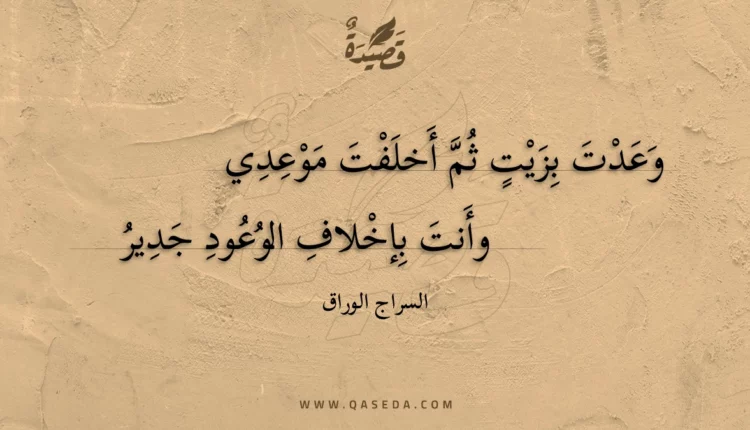 قَصِيدَةٌ
وَعَدْتَ بِزَيْتٍ ثُمَّ أَخلَفْتَ مَوْعِدِي
وأَنتَ بِإخْلافِ الوُعُودِ جَدِيرُ
السراج الوراق
WWW.QASEDA.COM